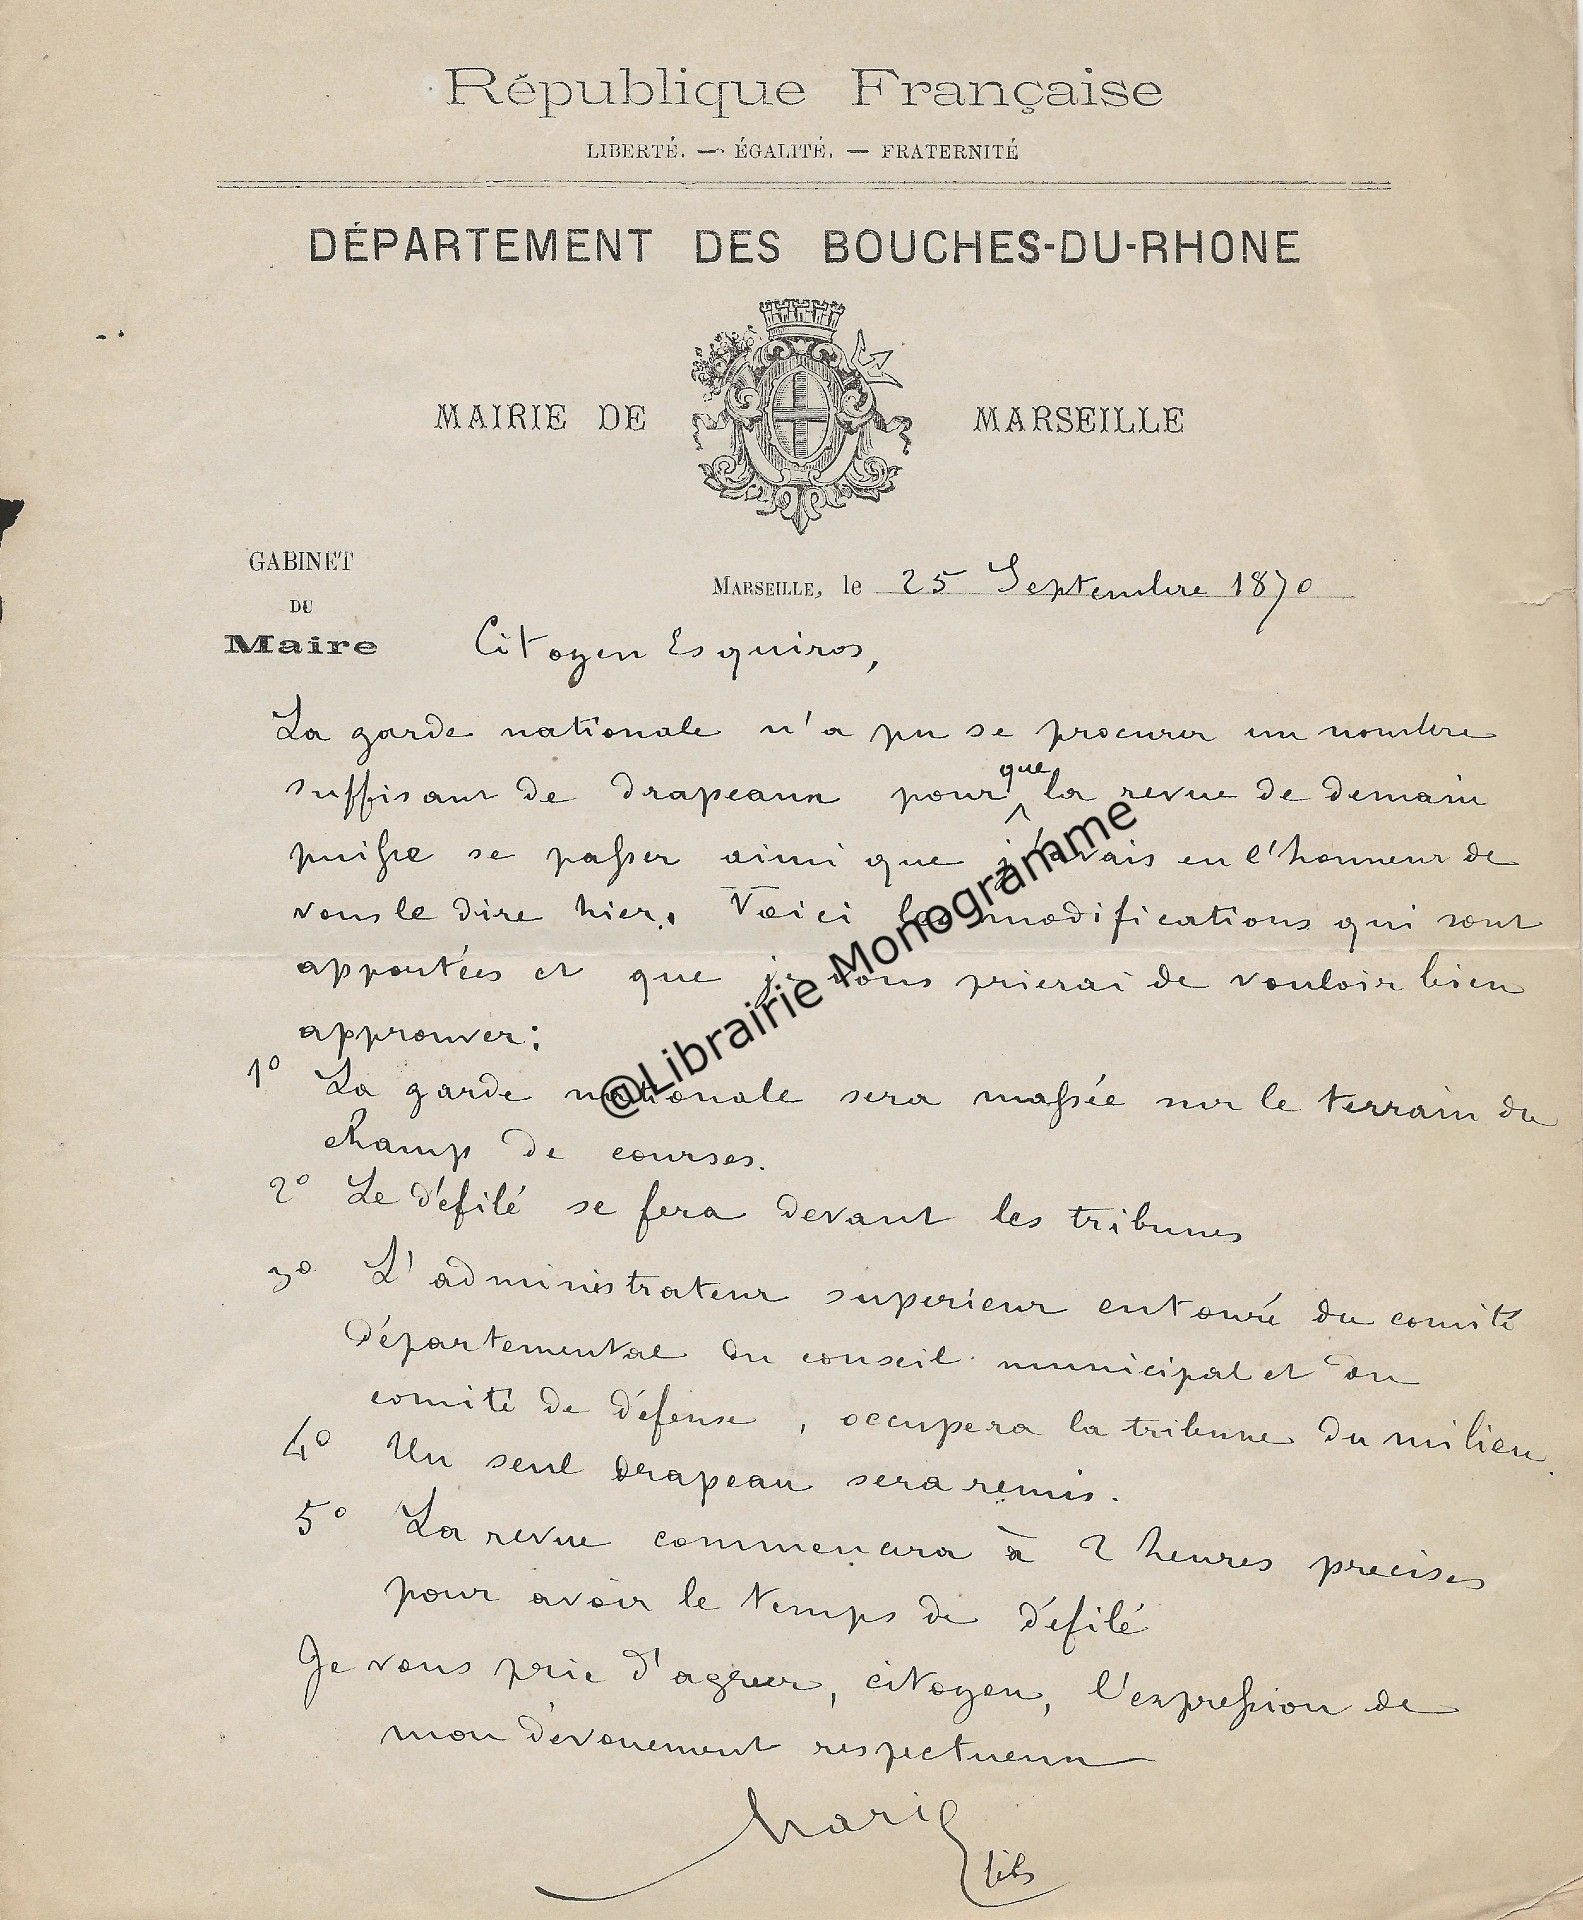 République Française
LIBERTÉ. — ÉGALITÉ. — FRATERNITÉ
DÉPARTEMENT DES BOUCHES-DU-RHONE
MAIRIE DE MARSEILLE
GABINET
DU
Maire
MARSEILLE, le 25 Septembre 1870
Citoyen Esquiros,
La garde nationale n'a pu se procurer un nombre
suffisant de drapeaux pour que la revue de demain
puisse se passer ainsi que j'avais eu l'honneur de
vous le dire hier. Voici les modifications qui sont
apportées et que je vous prierai de vouloir bien
approuver:
1º La garde nationale sera massée sur le terrain du
champ de courses.
2º Le défilé se fera devant les tribunes
3º L'administrateur superieur entouré du comité
départemental du conseil municipal et du
comité de défense, occupera la tribune du milieu.
4º Un seul drapeau sera remis.
5º La revue commencera à 2 heures precises
pour avoir le temps de défilé
Je vous prie d'agreer, citoyen, l'expression de
mon dévouement respectueux
Marie
fils
@Librairie Monogramme